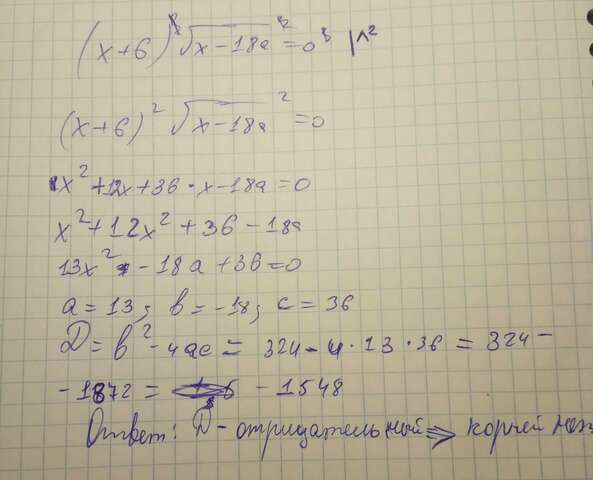 (x+6)²√(x-18a)²=0 |^2
(x+6)²√(x-18a)²=0
x²+12x+36·x-18a=0
x²+12x²+36-18a
13x²-18a+36=0
a=13; b=-18; c=36
D=b²-4ac=324-4·13·36=324-
-1872=-1548
Ответ: D-отрицательный ⇒ корней нет